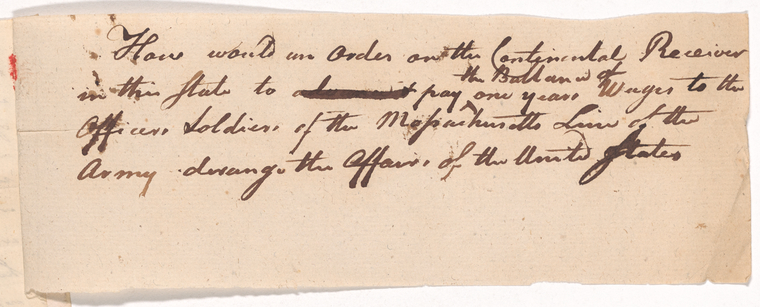 How would an order on the Continental Receiver
in this State to pay the Ballance of one years Wages to the
Officers Soldiers of the Massachusetts Line of the
Army derange the Affairs of the United States